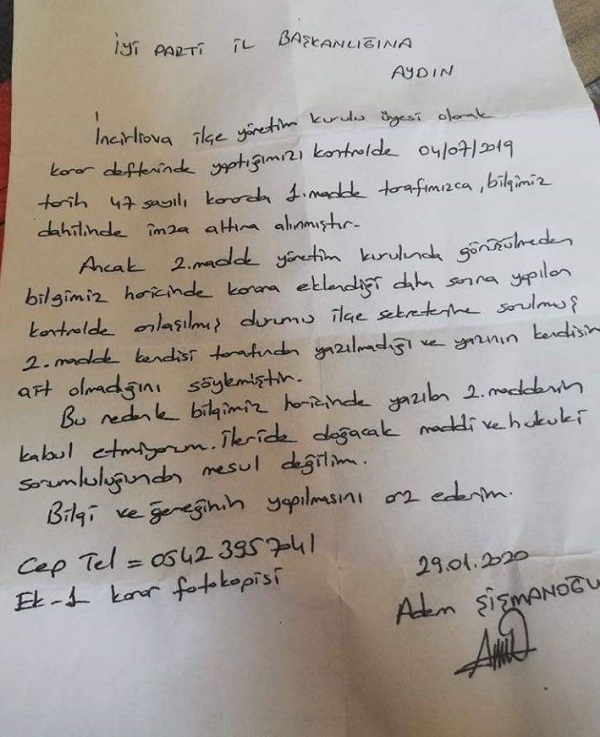 İYİ PARTİ İL BAŞKANLIĞINA
AYDIN
İncirliova ilçe yönetim kurulu üyesi olarak
karar defterinde yaptığımızı kontrolde 04/07/2019
tarih 47 sayılı kararda 1.madde tarafımızca, bilgimiz
dahilinde imza altına alınmıştır.
Ancak 2.madde yönetim kurulunda görüşülmeden
bilgimiz haricinde karara eklendiği daha sonra yapılan
kontrolde anlaşılmış durumu ilçe sekreterine sorulmuş
2.madde kendisi tarafından yazılmadığı ve yazının kendisin
ait olmadığını söylemiştir.
Bu nedenle bilgimiz haricinde yazılan 2.maddenin
kabul etmiyorum. İleride doğacak maddi ve hukuki
sorumluluğundan mesul değilim.
Bilgi ve gereğinin yapılmasını arz ederim.
Cep Tel = 0542 395 7041
29.01.2020
Ek-1 karar fotokopisi
Adem ŞİŞMANOĞU